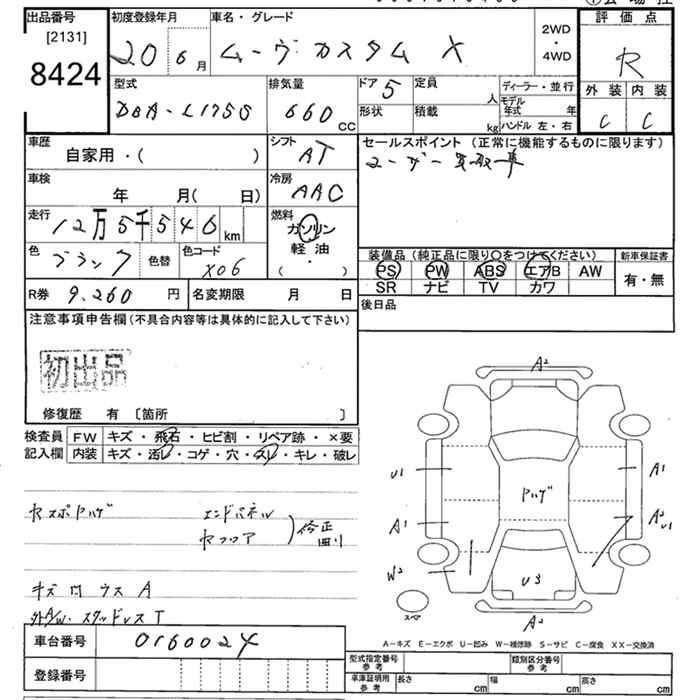 出品番号 初度登録年月 車名・グレード 評価点
[2131]
8424
20 6月 ムーヴカスタム X 2WD・4WD R
型式 排気量 ドア 5 定員 人 ディーラー・並行 外装 内装
DBA-L175S 660CC 形状 積載 kg モデル年式 年 C C
ハンドル 左・右
車歴 シフト セールスポイント (正常に機能するものに限ります)
自家用・( ) AT ユーザー買取車
車検 冷房
年 月( 日) AAC
走行 12万5千546km 燃料 ガソリン・軽油・( )
色 ブラック 色替 色コード X06
装備品 (純正品に限り○をつけてください) 新車保証書
PS PW ABS エアB AW 有・無
SR ナビ TV カワ
R券 9.260円 名変期限 月 日 後日品
注意事項申告欄(不具合内容等は具体的に記入して下さい)
初出品
修復歴 有〔箇所 〕
検査員 FW キズ・飛石・ヒビ割・リペア跡・×要
記入欄 内装 キズ・汚レ・コゲ・穴・スレ・キレ・破レ
ヤスポハゲ エンドパネル
ヤフロア 修正
キズ凹ウスA
外A/W・スタッドレスT
車台番号 0160024
登録番号
A2
U1 A1
ハゲ
A1 A2 U1
W2
U3
スペア
A2
A-キズ E-エクボ U-凹み W-補修跡 S-サビ C-腐食 XX-交換済
型式指定番号 参考 類別区分番号 参考
車庫証明用 参考 長さ cm 幅 cm 高さ cm